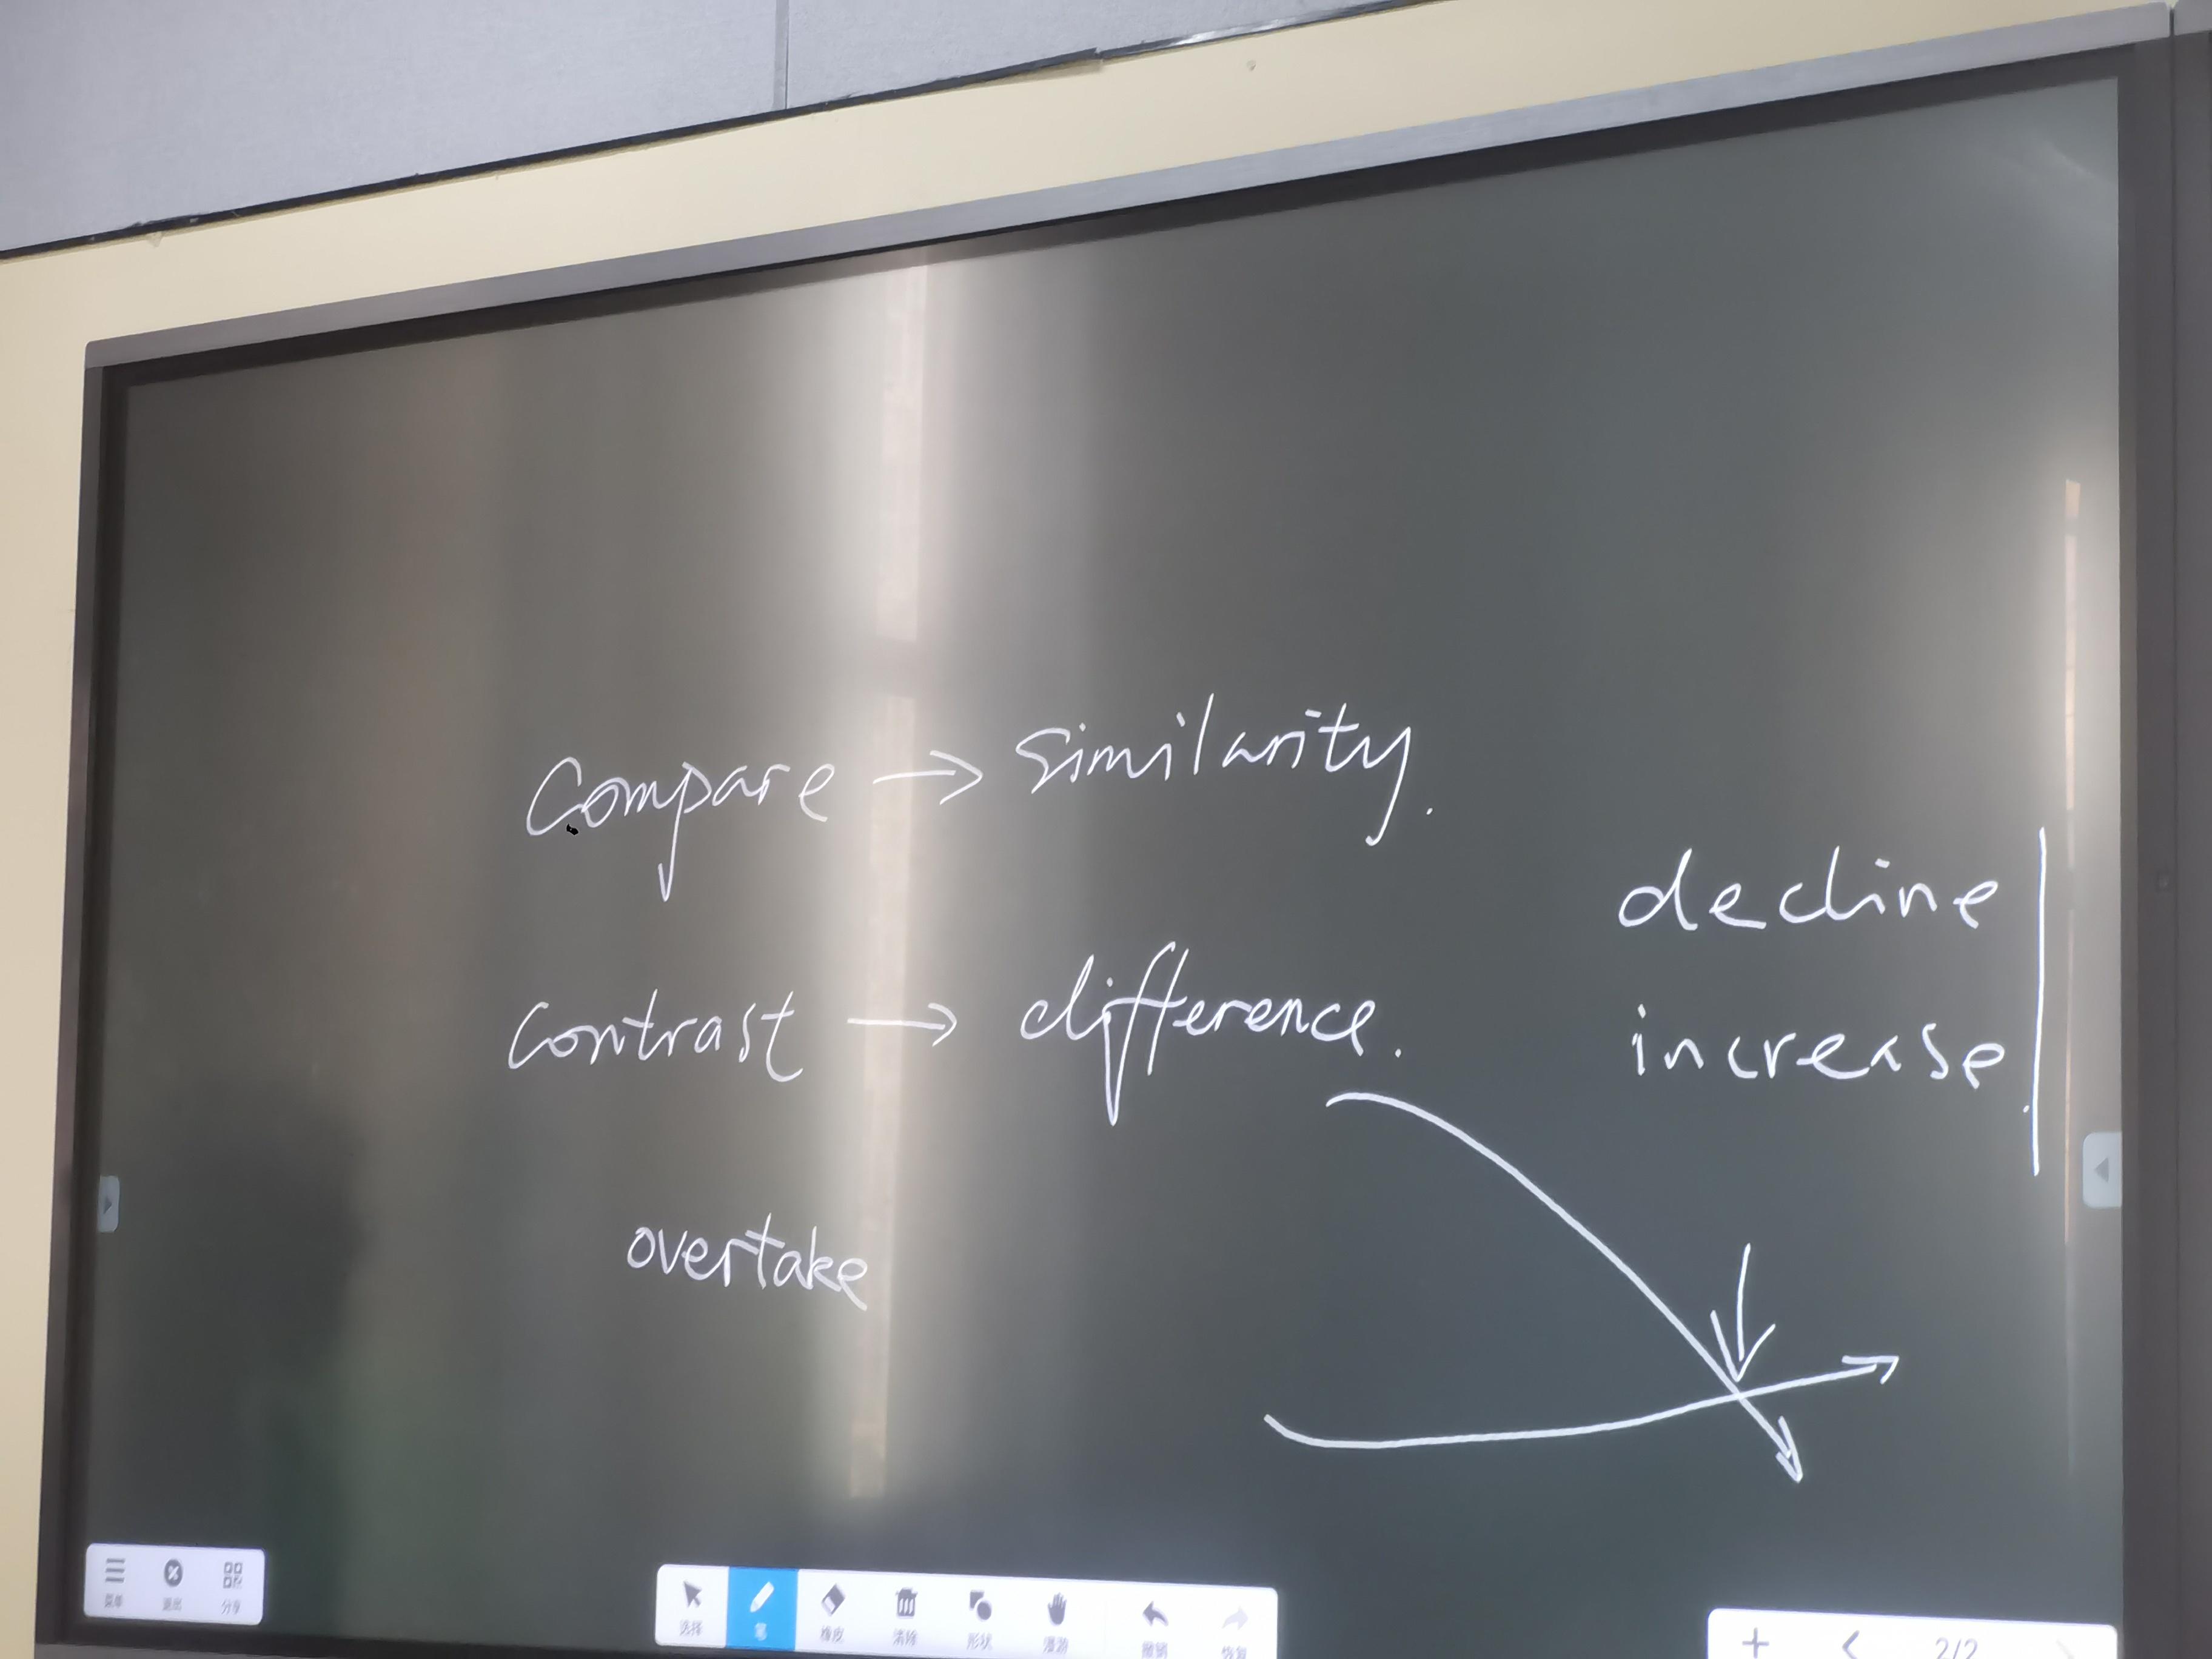 Compare → Similarity.
decline
Contrast → difference.
increase
overtake
菜单 退出 分享
选择 笔 橡皮 清除 形状 漫游 撤销 恢复
2/2